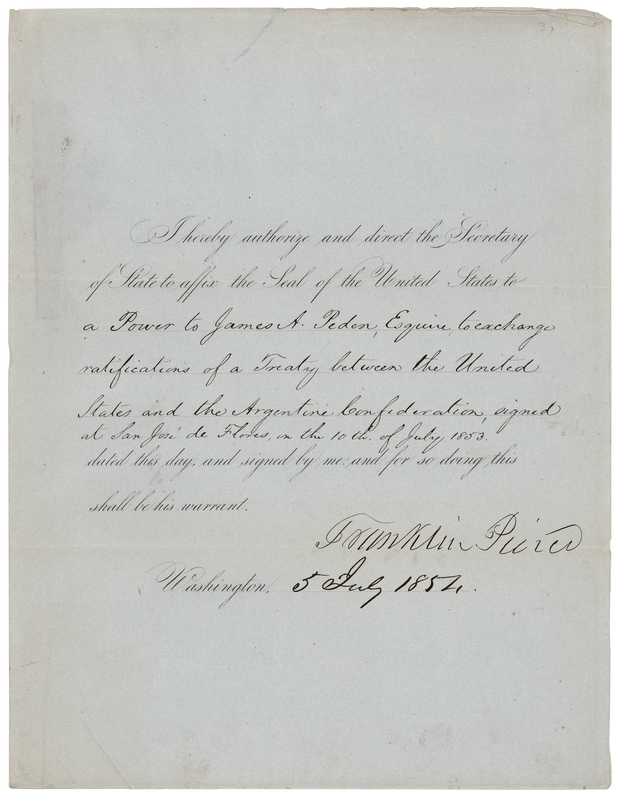 I hereby authorize and direct the Secretary
of State to affix the Seal of the United States to
a Power to James A. Peden, Esquire, to exchange
ratifications of a Treaty between the United
States and the Argentine Confederation, signed
at San José de Flores, on the 10th. of July 1853.
dated this day, and signed by me: and for so doing this
shall be his warrant.
Franklin Pierce
Washington, 5 July 1854.